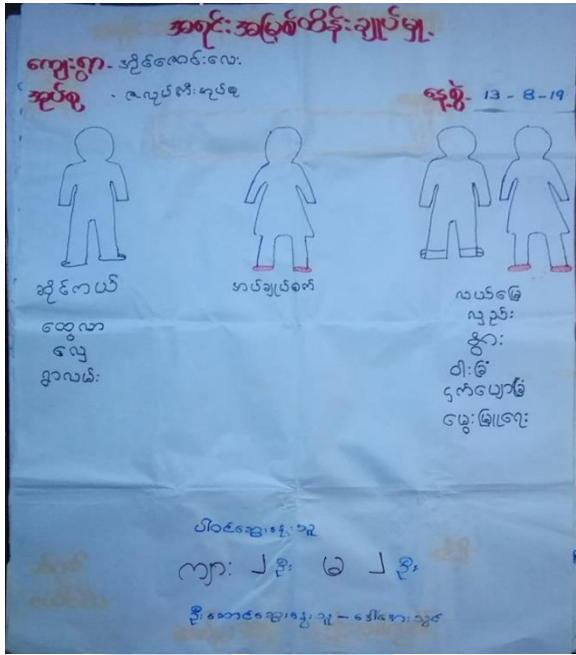 အရင်းအမြစ်ထိန်းချုပ်မှု့
ကျေးရွာ - အိုင်ဇောင်းလေး
အုပ်စု - ဇလုပ်ကြီးအုပ်စု
နေ့စွဲ - 13 - 8 - 19
ဆိုင်ကယ်
ထွေလာ
လှေ
ရွာလမ်း
အပ်ချုပ်စက်
လယ်မြေ
လှည်း
နွား
ဝါးခြံ
ငှက်ပျောခြံ
မွေးမြူရေး
ပါဝင်ဆွေးနွေးသူ
ကျား ၂ ဦး မ ၂ ဦး
ဦးဆောင်ဆွေးနွေးသူ - ဒေါ်အေးသွင်